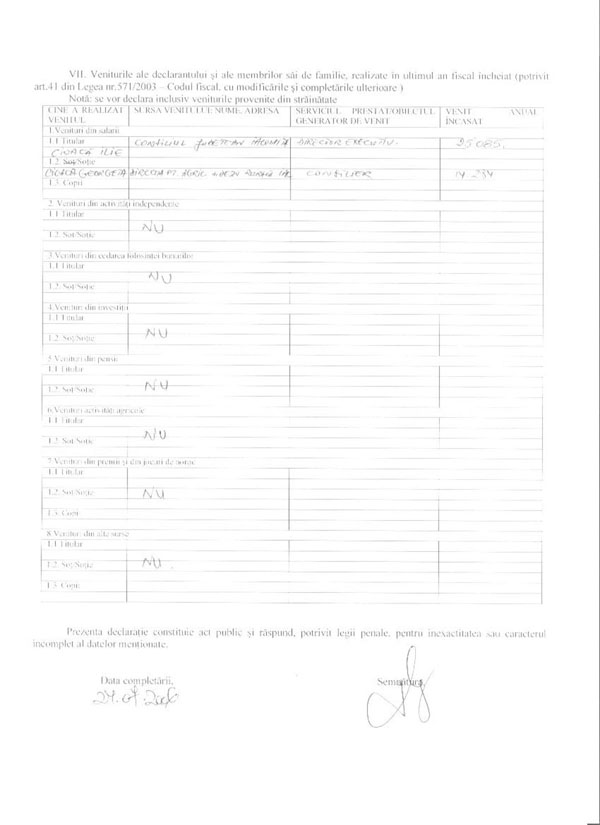 VII. Veniturile ale declarantului și ale membrilor săi de familie, realizate în ultimul an fiscal încheiat (potrivit
art.41 din Legea nr.571/2003 – Codul fiscal, cu modificările și completările ulterioare )
Notă: se vor declara inclusiv veniturile provenite din străinătate
CINE A REALIZAT VENITUL SURSA VENITULUI: NUME, ADRESA SERVICIUL PRESTAT/OBIECTUL GENERATOR DE VENIT VENIT ANUAL ÎNCASAT
1.Venituri din salarii
1.1.Titular CONSILIUL JUDETEAN DIRECTOR EXECUTIV. 25.085.
ILIE
1.2. Soț/Soție
CONSILIER 14.234
1.3. Copii
2. Venituri din activități independente
1.1.Titular
NU
1.2. Soț/Soție
3.Venituri din cedarea folosinței bunurilor
1.1.Titular
NU
1.2. Soț/Soție
4.Venituri din investiții
1.1.Titular
NU
1.2. Soț/Soție
5.Venituri din pensii
1.1.Titular
NU
1.2. Soț/Soție
6.Venituri activități agricole
1.1.Titular
NU
1.2. Soț/Soție
7.Venituri din premii și din jocuri de noroc
1.1.Titular
1.2. Soț/Soție NU
1.3. Copii
8.Venituri din alte surse
1.1.Titular
1.2. Soț/Soție NU.
1.3. Copii
Prezenta declarație constituie act public și răspund, potrivit legii penale, pentru inexactitatea sau caracterul
incomplet al datelor menționate.
Data completării, Semnătura,